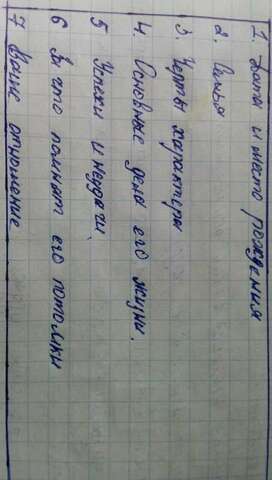 1. Дата и место рождения
2. Семья
3 Черты характера
4. Основные дела его жизни.
5 Успехи и неудачи.
6 За что помнят его потомки
7 Ваше отношение